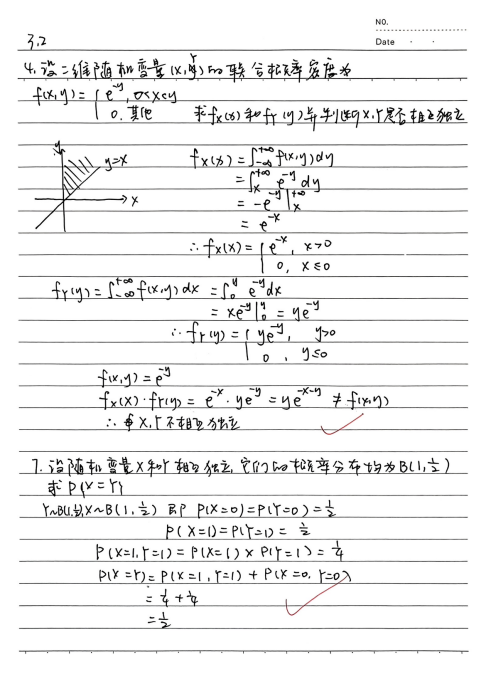 NO.
Date
3.2
4. 设二维随机变量(X,Y)的联合概率密度为
f(x,y)={ e^{-y}, 0<x<y
0, 其他 求f_X(x)和f_Y(y)并判断X,Y是否相互独立
y
y=x
x
f_X(x)=∫_{-∞}^{+∞} f(x,y)dy
=∫_x^{+∞} e^{-y} dy
= -e^{-y}|_x^{+∞}
= e^{-x}
∴ f_X(x)={ e^{-x}, x>0
0, x≤0
f_Y(y)=∫_{-∞}^{+∞} f(x,y)dx =∫_0^y e^{-y}dx
= xe^{-y}|_0^y = ye^{-y}
∴ f_Y(y)={ ye^{-y}, y>0
0, y≤0
f(x,y)=e^{-y}
f_X(x)·f_Y(y)=e^{-x}·ye^{-y}=ye^{-x-y} ≠ f(x,y)
∴ X,Y不相互独立
7. 设随机变量X和Y相互独立,它们的概率分布均为B(1,1/2)
求P{X=Y}
Y~B(1,1/2) X~B(1,1/2) 即 P(X=0)=P(Y=0)=1/2
P(X=1)=P(Y=1)=1/2
P(X=1,Y=1)=P(X=1)×P(Y=1)=1/4
P(X=Y)=P(X=1,Y=1)+P(X=0,Y=0)
=1/4+1/4
=1/2